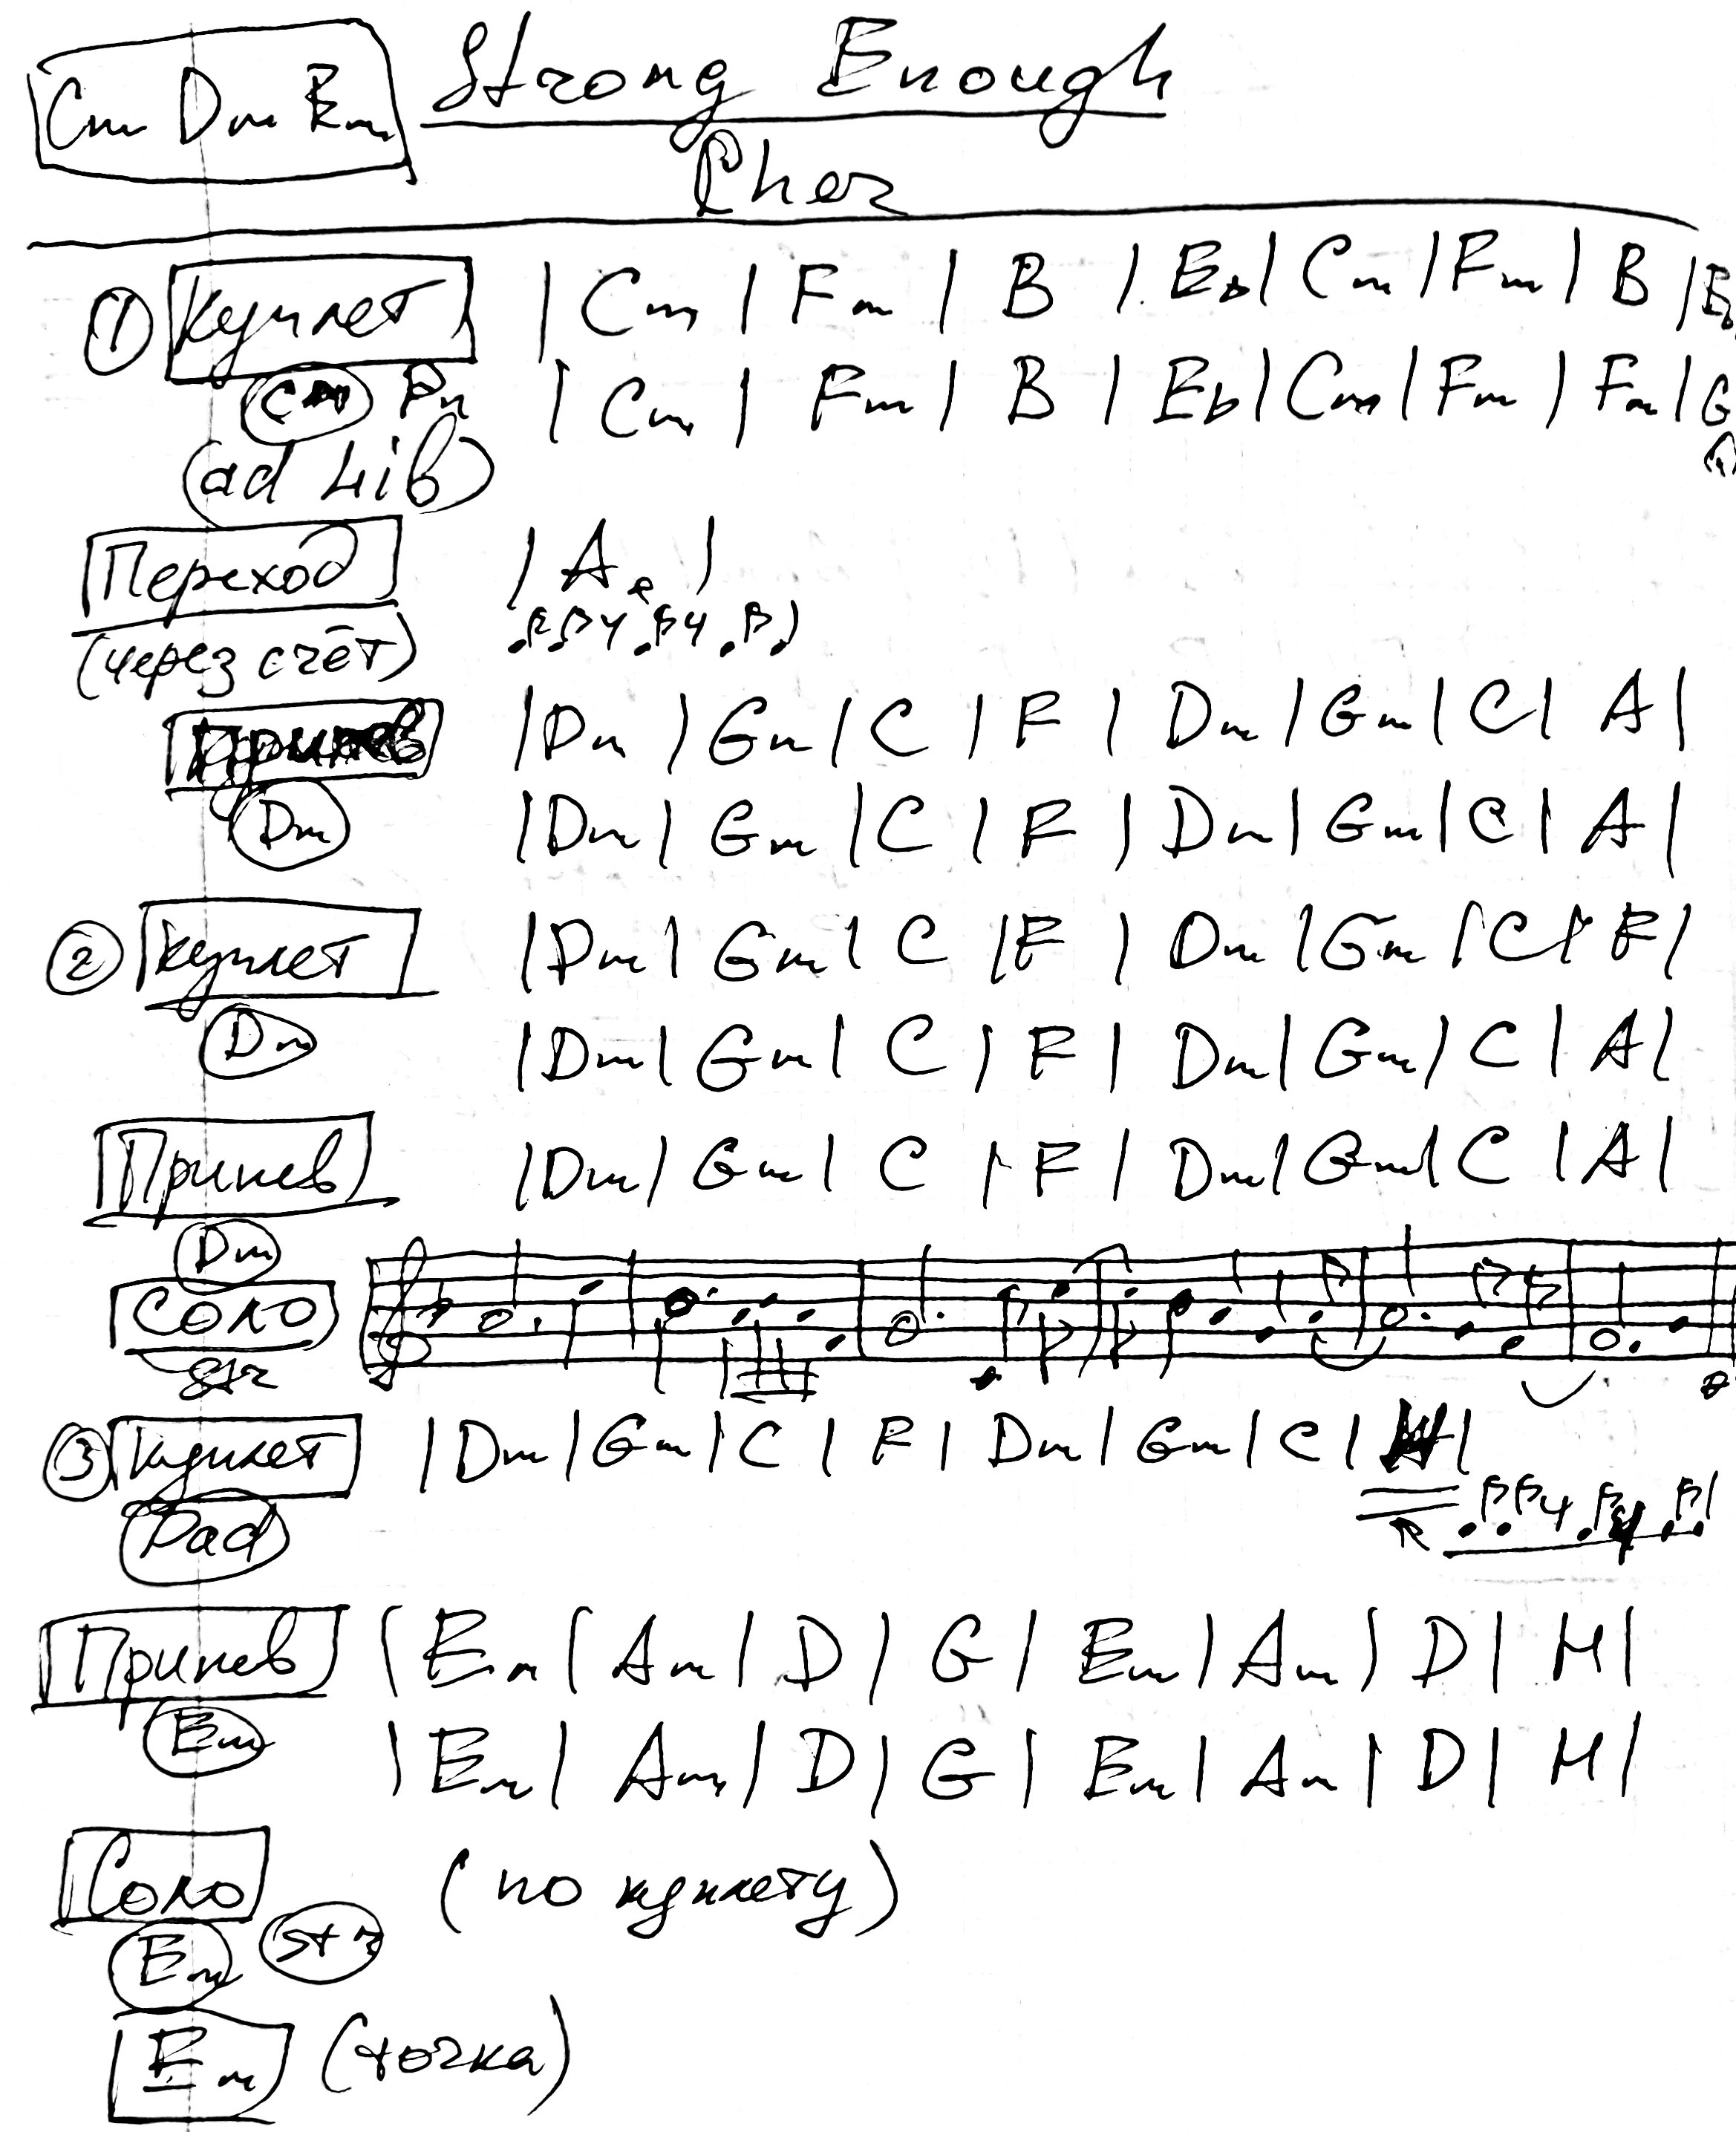 Cm Dm Em
Strong Enough
Cher
① Куплет | Cm | Fm | B | Eb | Cm | Fm | B | Eb
Cm Pn | Cm | Fm | B | Eb | Cm | Fm | Fm | G
(ad Lib)
Переход | A |
(через счёт)
Припев | Dm | Gm | C | F | Dm | Gm | C | A |
Dm | Dm | Gm | C | F | Dm | Gm | C | A |
② Куплет | Dm | Gm | C | F | Dm | Gm | C | F |
Dm | Dm | Gm | C | F | Dm | Gm | C | A |
Припев | Dm | Gm | C | F | Dm | Gm | C | A |
Dm
Соло
str
③ Куплет | Dm | Gm | C | F | Dm | Gm | C | A |
Pad
Припев | Em | Am | D | G | Em | Am | D | H |
Em | Em | Am | D | G | Em | Am | D | H |
Соло (по куплету)
Em str
Em (точка)